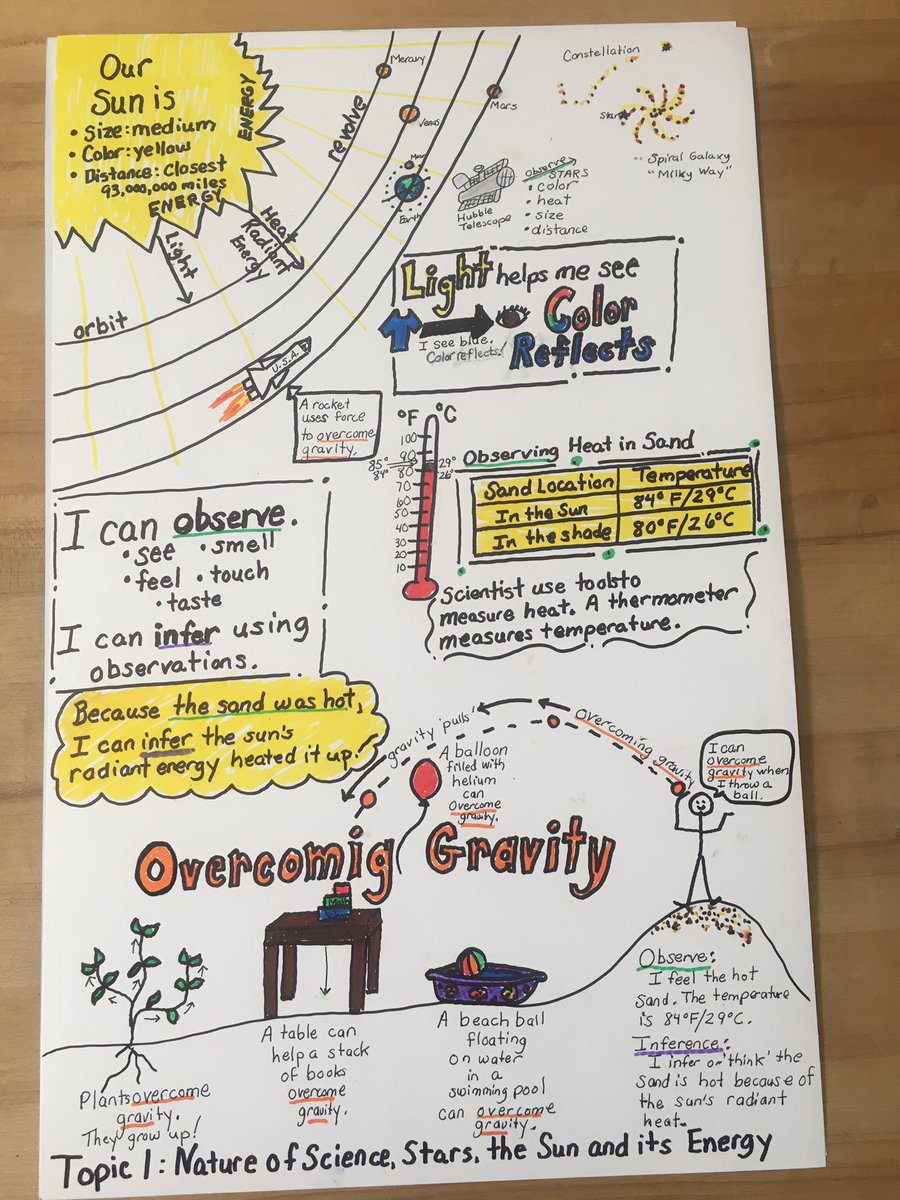 Our
Sun is
• Size: medium
• Color: yellow
• Distance: closest
93,000,000 miles
ENERGY
ENERGY
Light
Heat
Radiant
Energy
orbit
revolve
Mercury
Venus
Moon
Earth
Mars
Constellation
Star
"Spiral Galaxy
"Milky Way"
Hubble
Telescope
Observe
STARS
• color
• heat
• size
• distance
Light helps me see
Color
Reflects
I see blue.
Color reflects!
U.S.A.
A rocket
uses force
to overcome
gravity.
°F °C
100
90
80
70
60
50
40
30
20
10
85°
84°
29°
26°
Observing Heat in Sand
Sand Location Temperature
In the Sun 84°F/29°C
In the shade 80°F/26°C
Scientist use tools to
measure heat. A thermometer
measures temperature.
I can observe.
• see • smell
• feel • touch
• taste
I can infer using
observations.
Because the sand was hot,
I can infer the sun's
radiant energy heated it up!
gravity 'pulls'
overcoming gravity
A balloon
filled with
helium
can
overcome
gravity.
I can
overcome
gravity when
I throw a
ball.
Overcomig Gravity
Math
Plants overcome
gravity.
They grow up!
A table can
help a stack
of books
overcome
gravity.
A beach ball
floating
on water
in a
swimming pool
can overcome
gravity.
Observe:
I feel the hot
sand. The temperature
is 84°F/29°C.
Inference:
I infer or 'think' the
sand is hot because of
the sun's radiant
heat.
Topic 1: Nature of Science, Stars, the Sun and its Energy